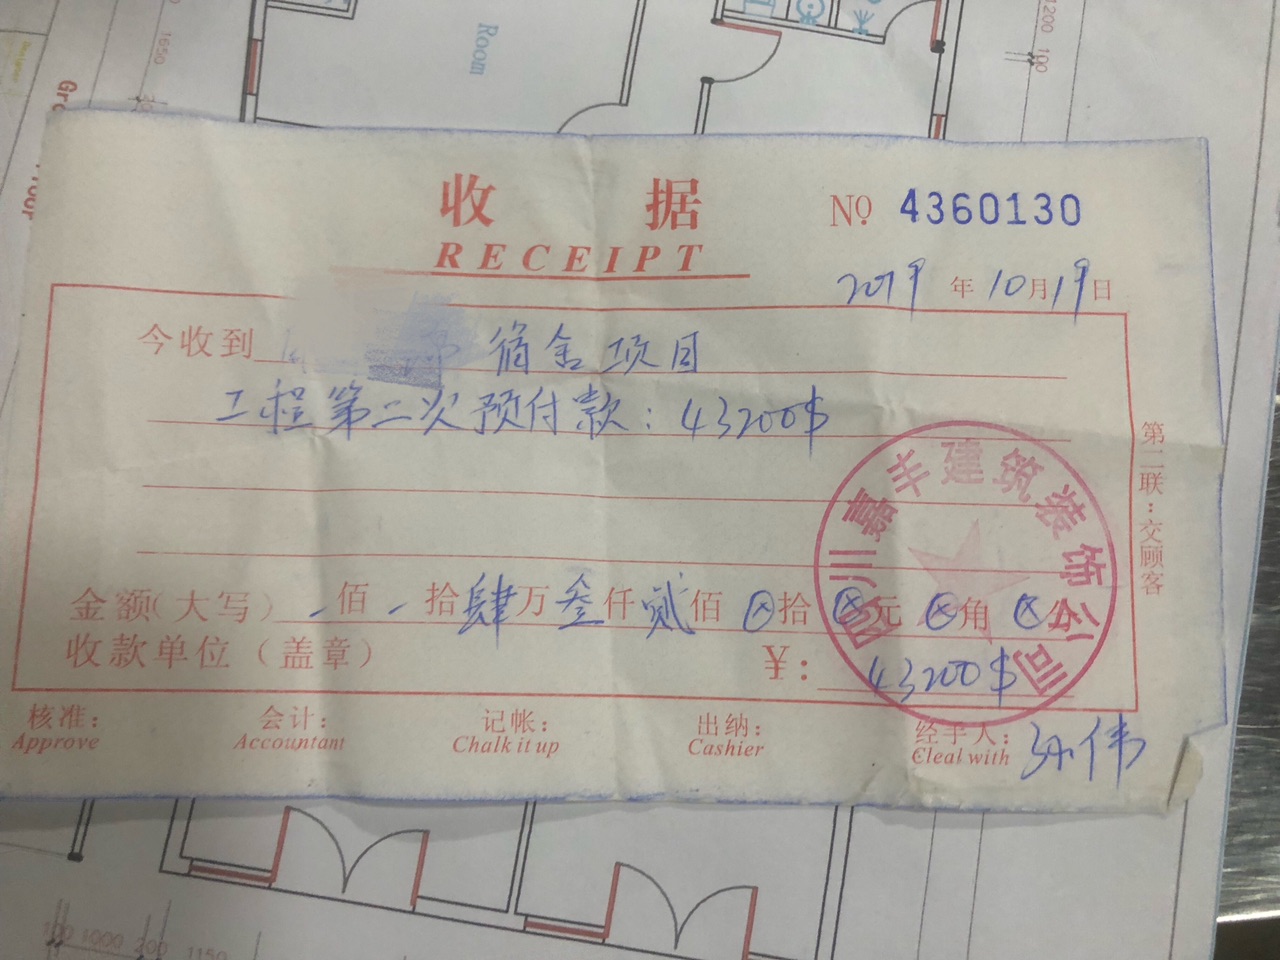 Room
1650
1200
100
收 据
RECEIPT
№ 4360130
2019 年 10 月 19 日
今收到 宿舍项目
工程第二次预付款：43200$
第二联：交顾客
四川嘉丰建筑装饰公司
金额（大写） 佰 拾 肆 万 叁 仟 贰 佰 ⊗ 拾 ⊗ 元 ⊗ 角 ⊗ 分
收款单位（盖章） ¥：43200$
核准： 会计： 记帐： 出纳： 经手人：孙伟
Approve Accountant Chalk it up Cashier Cleal with
100 1000 200 1150